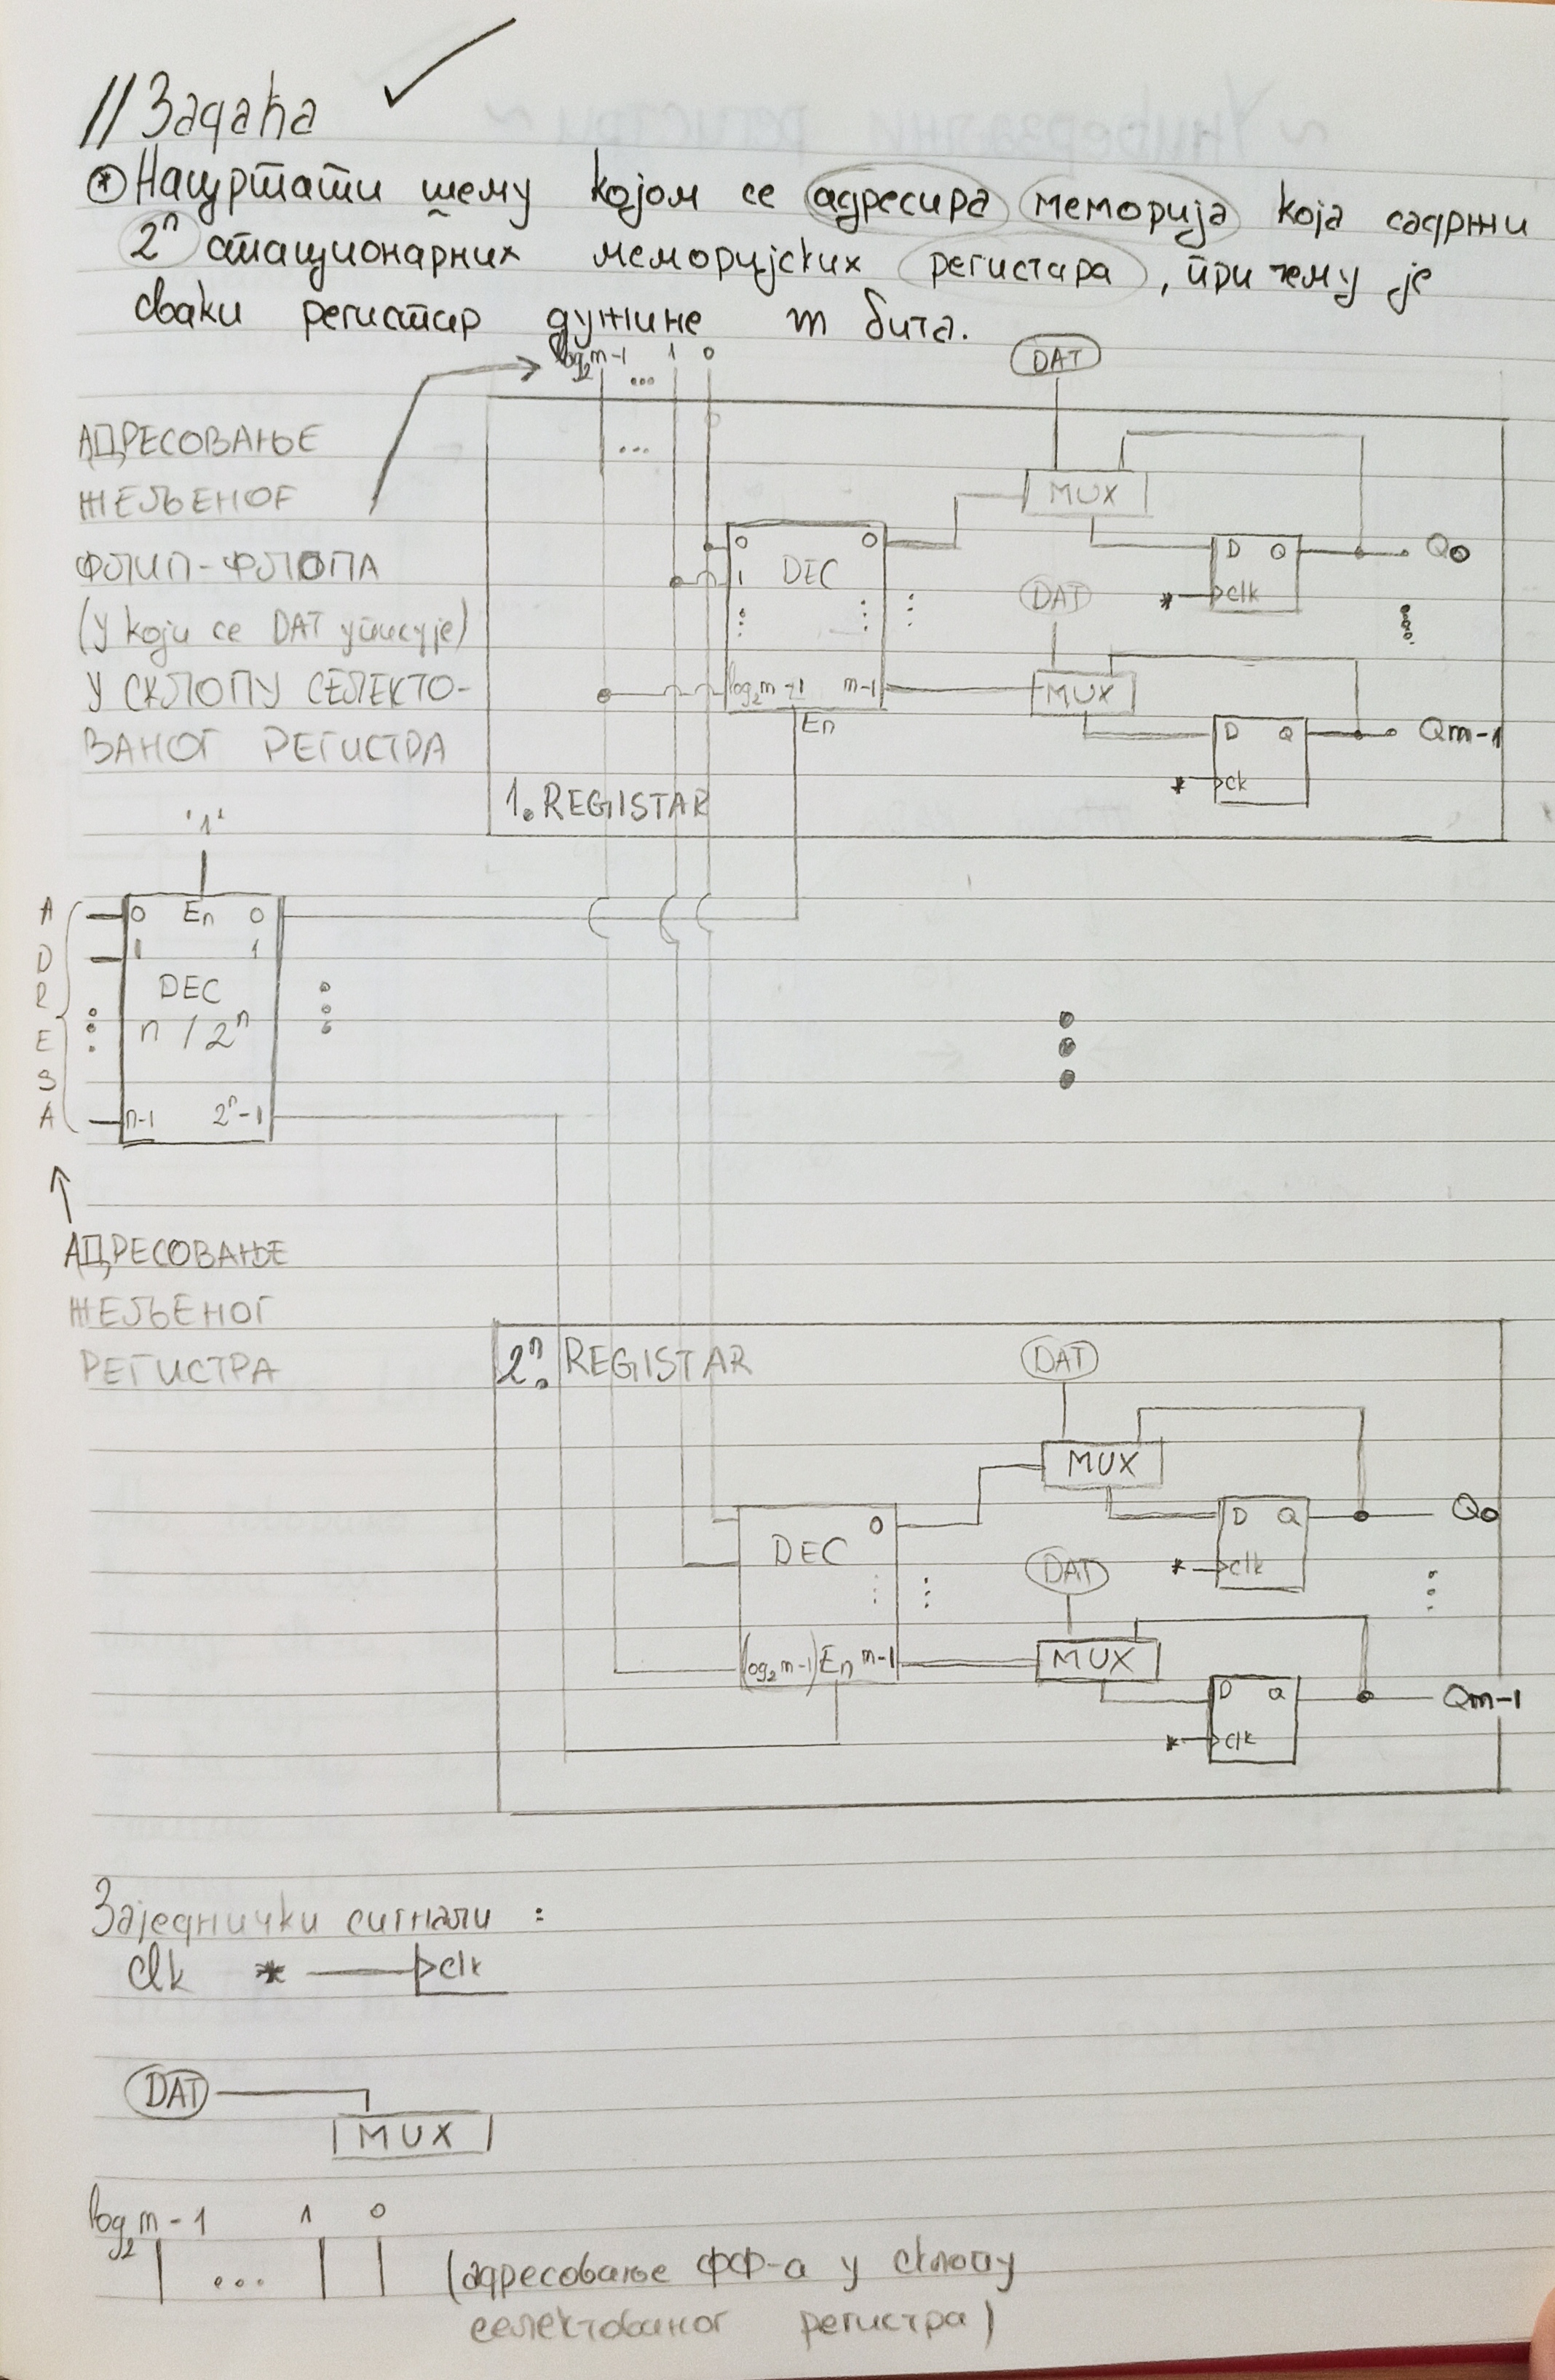 // Задаћа ✓
* Нацртати шему којом се адресира меморија која садржи
2ⁿ стационарних меморијских регистара, при чему је
сваки регистар дужине m бита.
log₂m-1 ... 1 0
DAT
АДРЕСОВАЊЕ
ЖЕЉЕНОГ
ФЛИП-ФЛОПА
(у који се DAT уписује)
У СКЛОПУ СЕЛЕКТО-
ВАНОГ РЕГИСТРА
...
MUX
0 DEC 0
1
D Q Q0
clk
*
DAT
MUX
log₂m-1 m-1
En
D Q Qm-1
clk
*
1. REGISTAR
'1'
ADRESA
0 En 0
1 1
DEC
n / 2ⁿ
n-1 2ⁿ-1
АДРЕСОВАЊЕ
ЖЕЉЕНОГ
РЕГИСТРА
2ⁿ. REGISTAR
DAT
MUX
DEC 0
D Q Q0
clk
*
DAT
MUX
(log₂m-1) En m-1
D Q Qm-1
clk
*
Заједнички сигнали :
clk * clk
DAT
MUX
log₂m-1 1 0
... (адресовање ФФ-а у склопу
селектованог регистра)